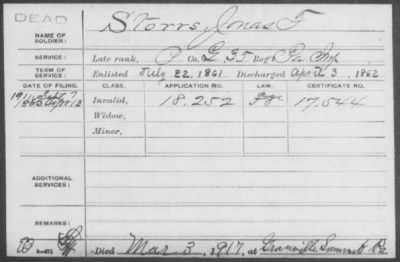 DEAD
NAME OF SOLDIER: Storrs, Jonas T
SERVICE: Late rank, P Co. G, 35 Reg't Pa Inf
TERM OF SERVICE: Enlisted July 22, 1861 Discharged April 3, 1862
DATE OF FILING. CLASS. APPLICATION NO. LAW. CERTIFICATE NO.
1911 Sept 7
1863 Apr 13 Invalid, 18.252 17.544
Widow,
Minor,
ADDITIONAL SERVICES:
REMARKS:
Died Mar 3, 1917, at Granville Summit Pa